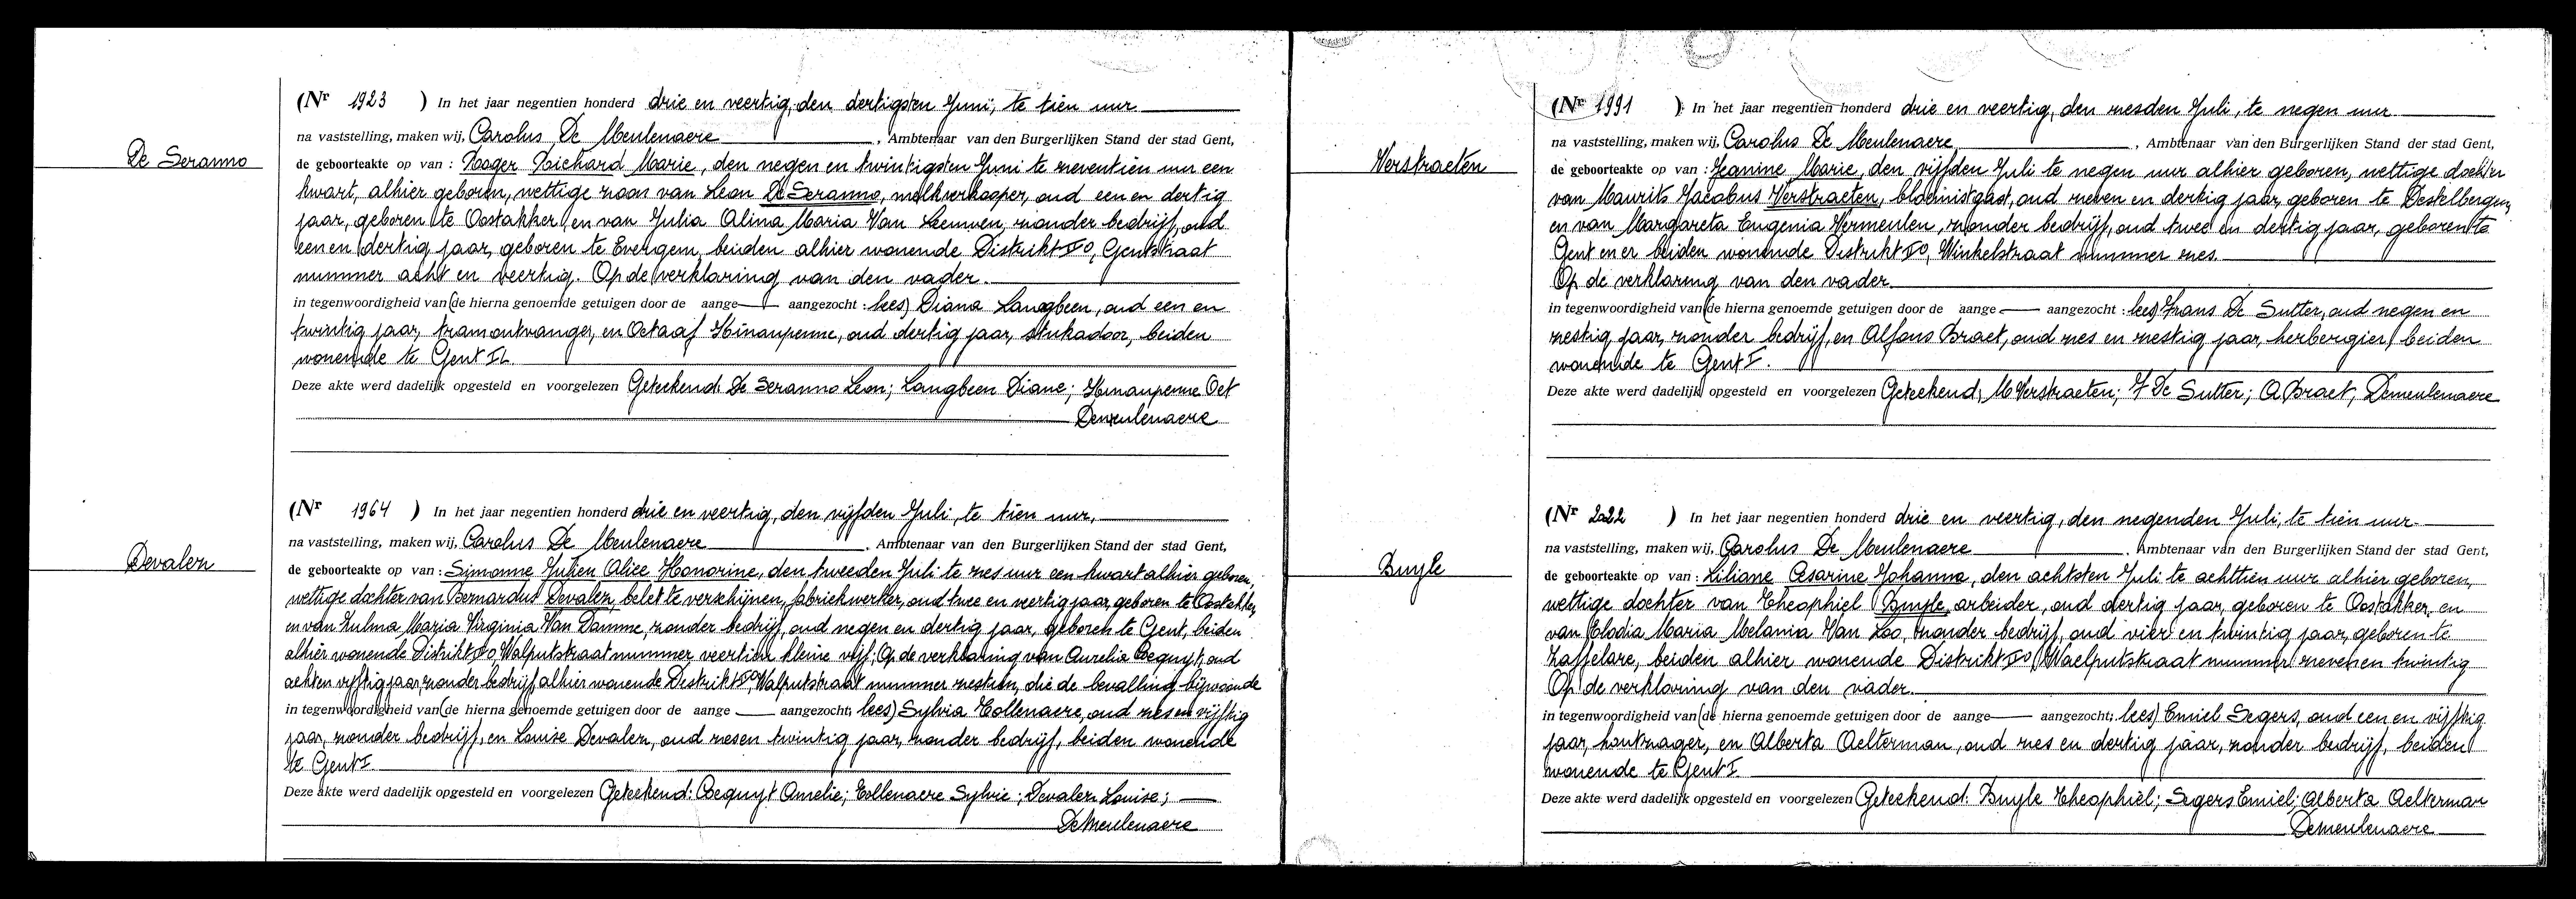 De Seranno
(Nr 1923 ) In het jaar negentien honderd drie en veertig, den dertigsten Juni, te tien uur
na vaststelling, maken wij, Carolus De Meulenaere , Ambtenaar van den Burgerlijken Stand der stad Gent,
de geboorteakte op van : Roger Richard Marie, den negen en twintigsten Juni te zeventien uur een
kwart, alhier geboren, wettige zoon van Leon De Seranno, melkverkooper, oud een en dertig
jaar, geboren te Oostakker, en van Julia Alina Maria Van Leeuwen, zonder bedrijf, oud
een en dertig jaar, geboren te Evergem, beiden alhier wonende Distrikt Gentstraat
nummer acht en veertig. Op de verklaring van den vader.
in tegenwoordigheid van (de hierna genoemde getuigen door de aange— aangezocht : lees) Diana Langbeen, oud een en
twintig jaar, tramontvanger, en Octaaf Hinaupenne, oud dertig jaar, stukadoor, beiden
wonende te Gent
Deze akte werd dadelijk opgesteld en voorgelezen Geteekend: De Seranno Leon; Langbeen Diane; Hinaupenne Oct
Demeulenaere
Devalez
(Nr 1964 ) In het jaar negentien honderd drie en veertig, den vijfden Juli, te tien uur,
na vaststelling, maken wij, Carolus De Meulenaere , Ambtenaar van den Burgerlijken Stand der stad Gent,
de geboorteakte op van : Simonne Julien Alice Honorine, den tweeden Juli te zes uur een kwart alhier geboren,
wettige dochter van Bernardus Devalez, belet te verschijnen, fabriekwerker, oud twee en veertig jaar, geboren te Oostakker,
en van Zulma Maria Virginia Van Damme, zonder bedrijf, oud negen en dertig jaar, geboren te Gent, beiden
alhier wonende Distrikt Walputstraat nummer veertien kleine vijf; Op de verklaring van Aurelia Beguyt, oud
acht en vijftig jaar, zonder bedrijf alhier wonende Distrikt Walputstraat nummer zestien, die de bevalling bijwoonde
in tegenwoordigheid van (de hierna genoemde getuigen door de aange — aangezocht; lees) Sylvia Tollenaere, oud zes en vijftig
jaar, zonder bedrijf, en Louise Devalez, oud zes en twintig jaar, zonder bedrijf, beiden wonende
te Gent I.
Deze akte werd dadelijk opgesteld en voorgelezen Geteekend: Beguyt Amelie; Tollenaere Sylvie; Devalez Louise;
DeMeulenaere
Verstraeten
(Nr 1991 ) In het jaar negentien honderd drie en veertig, den zesden Juli, te negen uur
na vaststelling, maken wij, Carolus De Meulenaere , Ambtenaar van den Burgerlijken Stand der stad Gent,
de geboorteakte op van : Jeanine Marie, den vijfden Juli te negen uur alhier geboren, wettige dochter
van Maurits Jacobus Verstraeten, bloemistgast, oud zeven en dertig jaar, geboren te Destelbergen,
en van Margareta Eugenia Vermeulen, zonder bedrijf, oud twee en dertig jaar, geboren te
Gent en er beiden wonende Distrikt Winkelstraat nummer zes.
Op de verklaring van den vader.
in tegenwoordigheid van (de hierna genoemde getuigen door de aange — aangezocht : lees) Frans De Sutter, oud negen en
zestig jaar, zonder bedrijf, en Alfons Braet, oud zes en zestig jaar, herbergier, beiden
wonende te Gent I.
Deze akte werd dadelijk opgesteld en voorgelezen Geteekend; M Verstraeten; F De Sutter; A Braet, Demeulenaere
Buyle
(Nr 2022 ) In het jaar negentien honderd drie en veertig, den negenden Juli, te tien uur
na vaststelling, maken wij, Carolus De Meulenaere , Ambtenaar van den Burgerlijken Stand der stad Gent,
de geboorteakte op van : Liliane Cesarine Johanna, den achtsten Juli te achttien uur alhier geboren,
wettige dochter van Theophiel Buyle, arbeider, oud dertig jaar, geboren te Oostakker, en
van Elodia Maria Melania Van Loo, zonder bedrijf, oud vier en twintig jaar, geboren te
Zaffelare, beiden alhier wonende Distrikt Waelputstraat nummer zeven en twintig
Op de verklaring van den vader.
in tegenwoordigheid van (de hierna genoemde getuigen door de aange— aangezocht; lees) Emiel Segers, oud een en vijftig
jaar, houtzager, en Alberta Aelterman, oud zes en dertig jaar, zonder bedrijf, beiden
wonende te Gent I
Deze akte werd dadelijk opgesteld en voorgelezen Geteekend: Buyle Theophiel; Segers Emiel; Alberta Aelterman
Demeulenaere